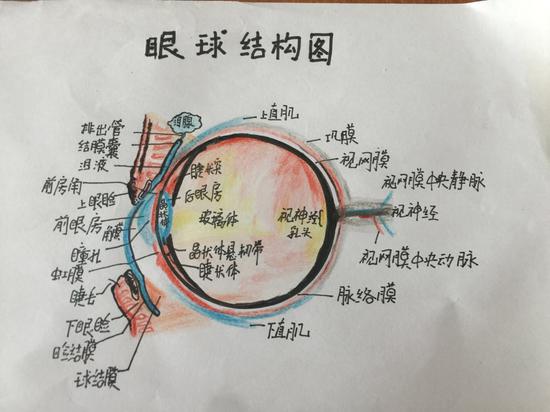 眼球结构图
泪腺
排出管
结膜囊
泪液
前房角
上眼睑
前眼房
角膜
瞳孔
虹膜
睫毛
下眼睑
睑结膜
球结膜
后眼房
晶状体
玻璃体
晶状体悬韧带
睫状体
视神经
乳头
上直肌
巩膜
视网膜
视网膜中央静脉
视神经
视网膜中央动脉
脉络膜
下直肌